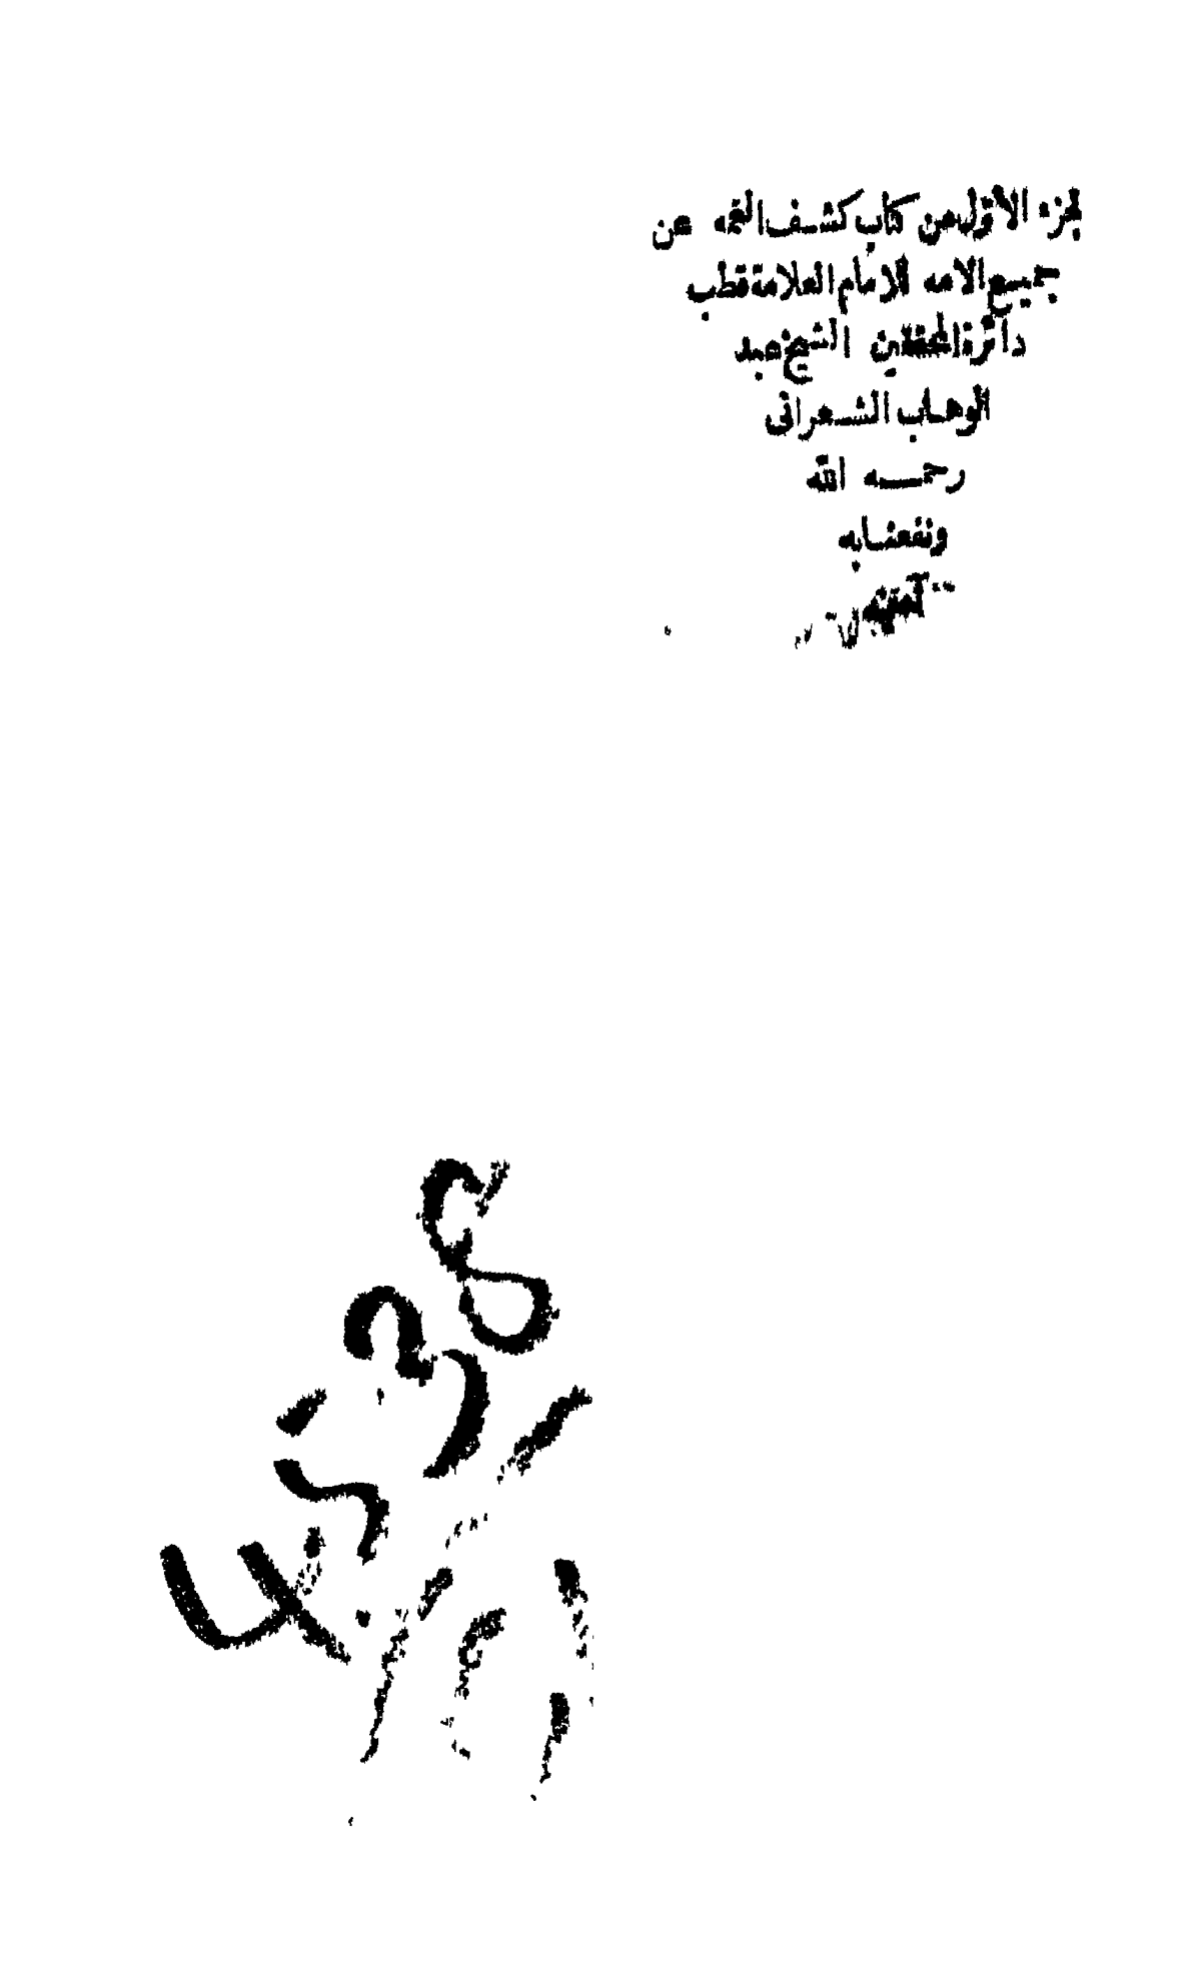 الجزء الأول من كتاب كشف الغمه عن
جميع الامه للامام العلامة قطب
دائرة المحققين الشيخ عبد
الوهاب الشعرانى
رحمه الله
ونفعنا به
آمين